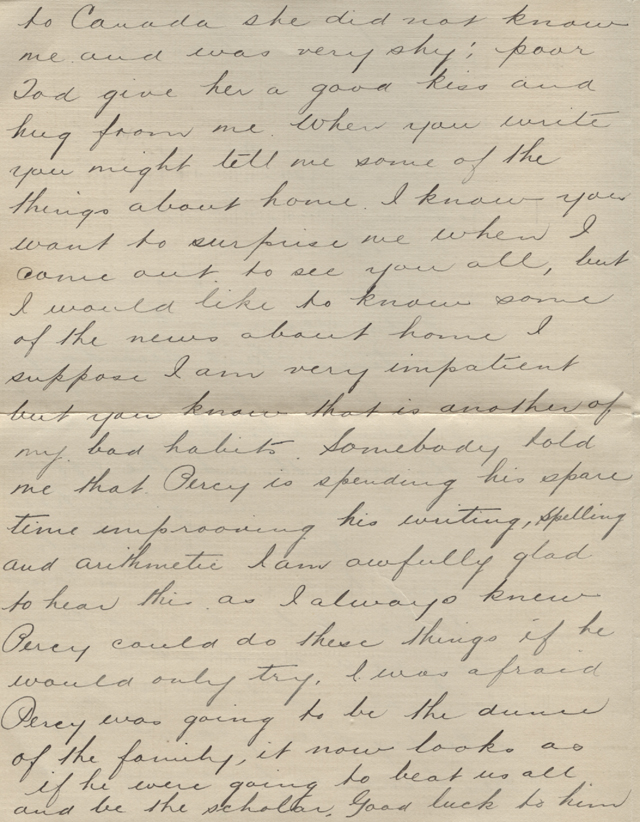 to Canada she did not know
me and was very shy; poor
Tod give her a good kiss and
hug from me. When you write
you might tell me some of the
things about home. I know you
want to surprise me when I
come out to see you all, but
I would like to know some
of the news about home I
suppose I am very impatient
but you know that is another of
my bad habits. Somebody told
me that Percy is spending his spare
time improoving his writing, spelling
and arithmetic I am awfully glad
to hear this as I always knew
Percy could do these things if he
would only try, I was afraid
Percy was going to be the dunce
of the family, it now looks as
if he were going to beat us all
and be the scholar. Good luck to him